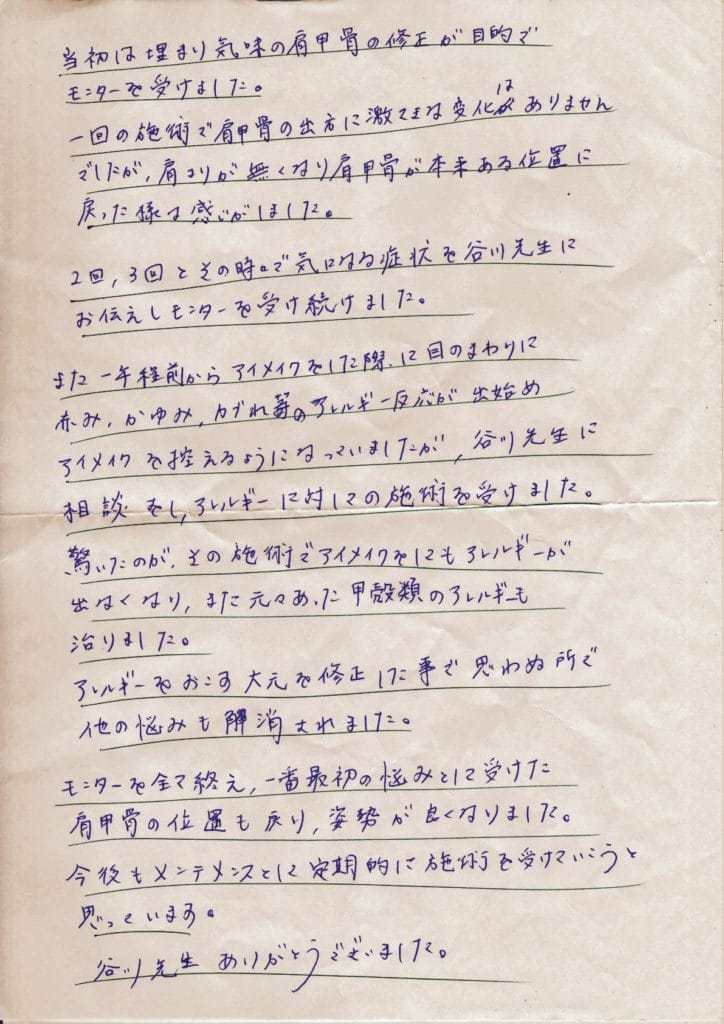 当初は埋まり気味の肩甲骨の修正が目的で
モニターを受けました。
一回の施術で肩甲骨の出方に激てきな変化はありません
でしたが、肩こりが無くなり肩甲骨が本来ある位置に
戻った様な感じがしました。
2回,3回とその時々で気になる症状を谷川先生に
お伝えしモニターを受け続けました。
また一年程前からアイメイクをした際に目のまわりに
赤み,かゆみ,かぶれ等のアレルギー反応が出始め
アイメイクを控えるようになっていましたが,谷川先生に
相談をし,アレルギーに対しての施術を受けました。
驚いたのが,その施術でアイメイクをしてもアレルギーが
出なくなり,また元々あった甲殻類のアレルギーも
治りました。
アレルギーをおこす大元を修正した事で思わぬ所で
他の悩みも解消されました。
モニターを全て終え,一番最初の悩みとして受けた
肩甲骨の位置も戻り,姿勢が良くなりました。
今後もメンテメンスとして定期的に施術を受けていこうと
思っています。
谷川先生ありがとうございました。